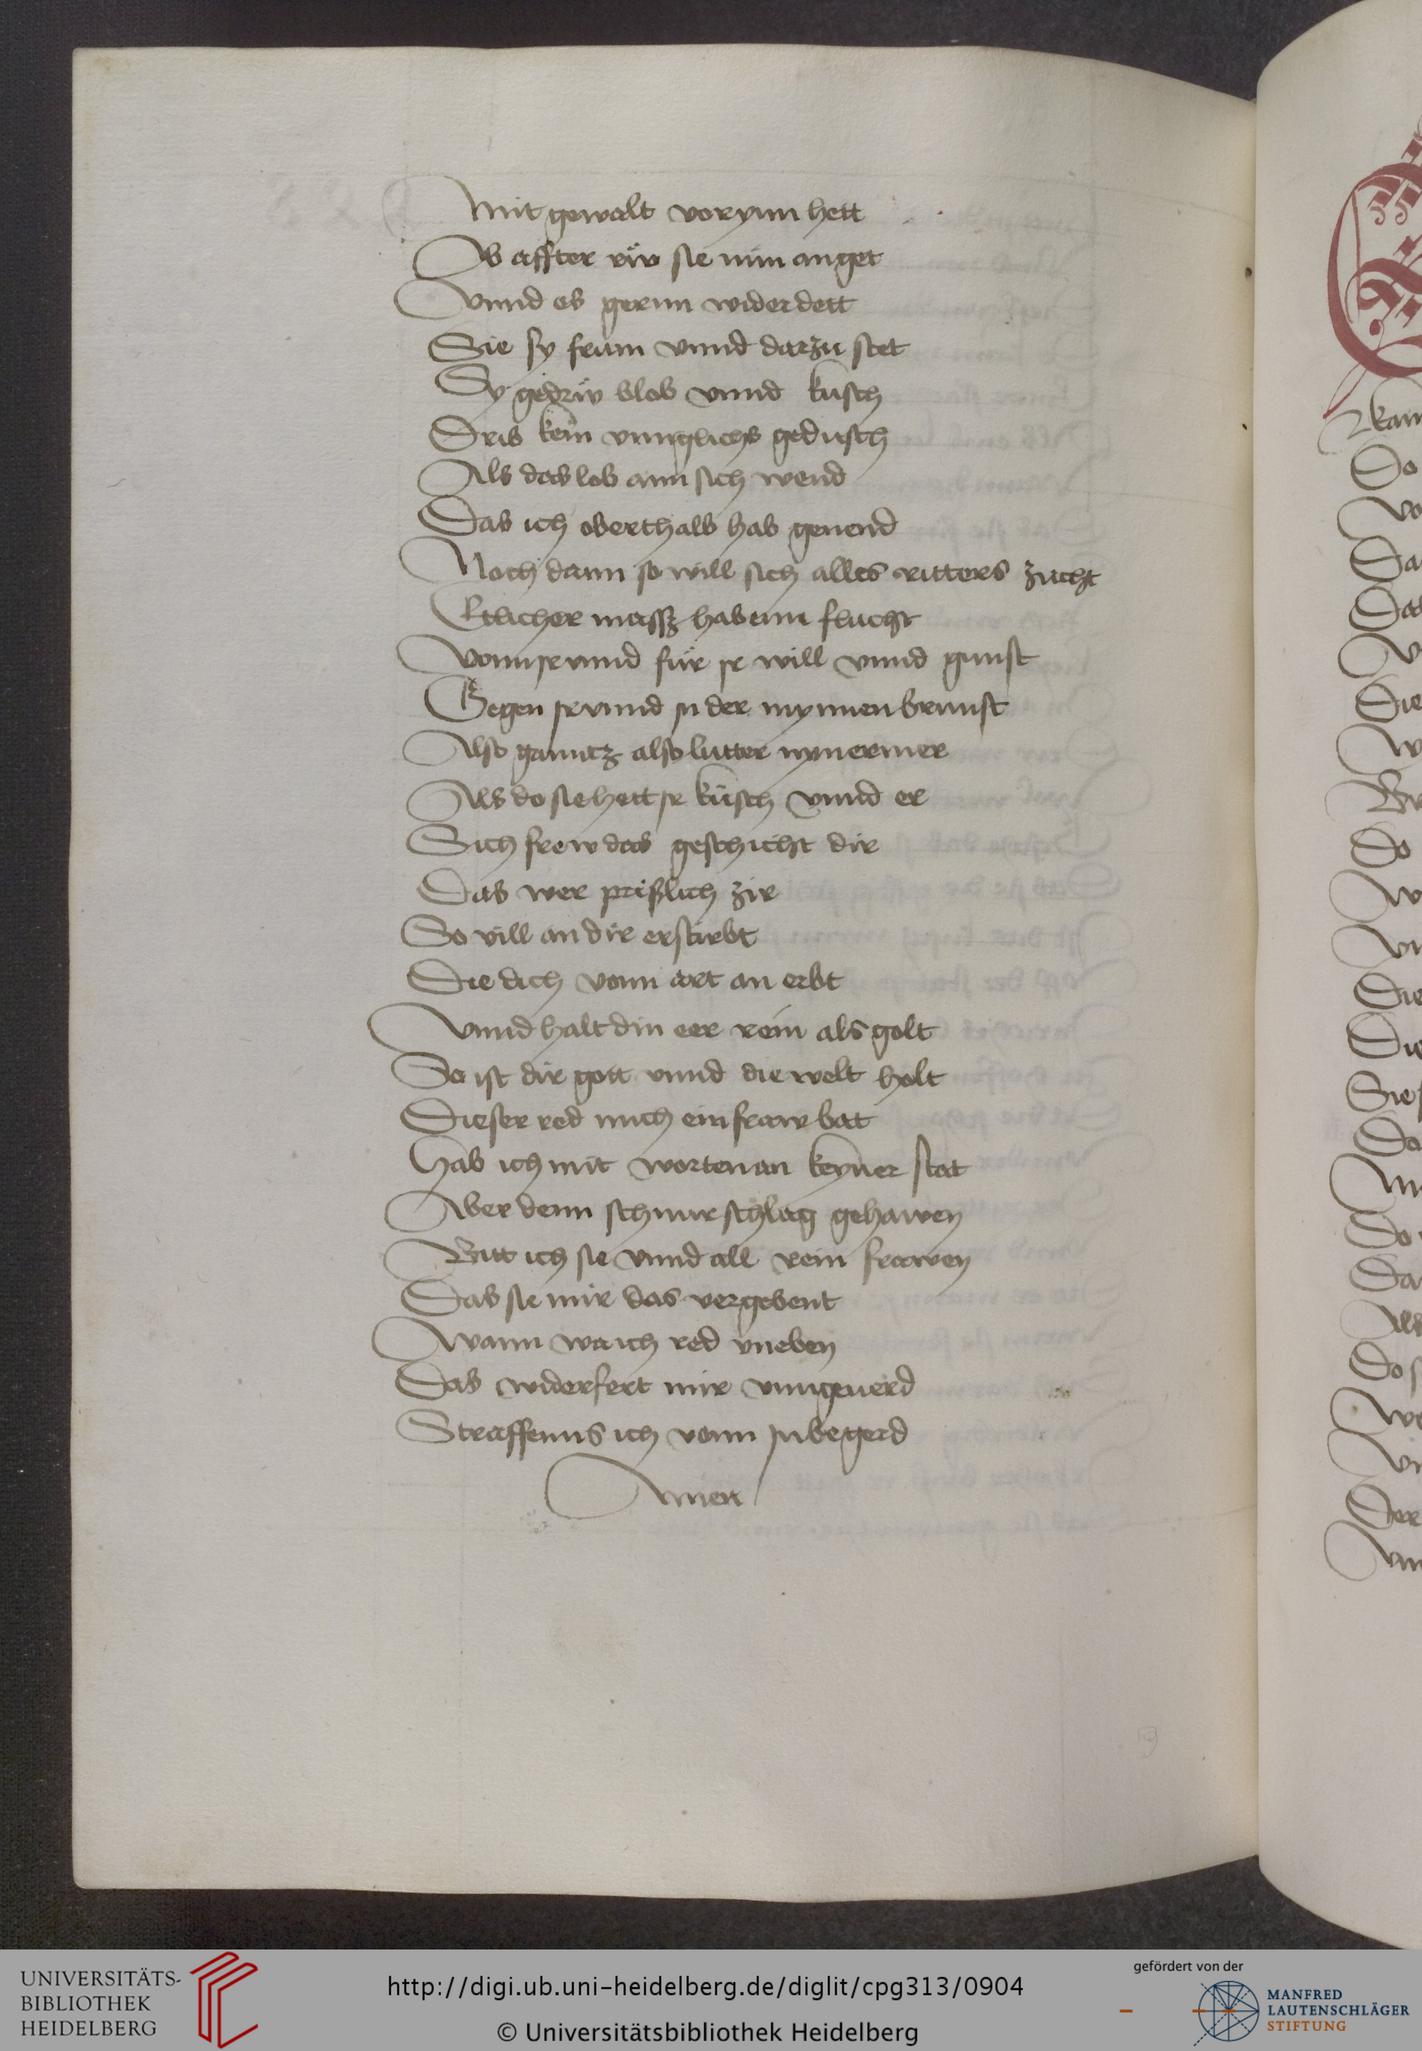 Mit gewalt vorynn hett
Ob affter rüw sie nim anget
Vnnd es gernn widerdett
Sie sy frum vnnd darzu stet
Sy gedrüw blob vnnd kusch
Dris kein vnnglichs gedusch
Als das lob ann sich wend
Das ich oberthalb hab genend
Noch dann so will sich alles ritters zucht
Etlicher massz habenn flucht
Vonn jr vnnd für jr will vnnd gunst
Gegen jr vnnd jn der mynnen brunst
Also ganntz also lutter nymermer
Als do sie hett jr küsch vnnd er
Sich frew das geschicht dir
Das wer prißlich zir
So vill an dir erstirbt
Die dich vonn art an erbt
Vnnd halt din eer rein als golt
So ist dir gott vnnd die welt holt
Dieser red mich ein fraw bat
Hab ich mit worten an keyner stat
Vber denn schnur schlag gehawen
Bitt ich sie vnnd all rein frawen
Das sie mir das vergebent
Wann wa ich red vneben
Das widerfert mir vnngeuerd
Straffenns ich vonn jn begerd
Amen
Do
Vo
Da
Das
V
Die
W
Do
W
Vn
Die
Die
Sie
Da
Do
Da
Als
Do s
Wo
Vn
Der
Vnn
UNIVERSITÄTS-
BIBLIOTHEK
HEIDELBERG
http://digi.ub.uni-heidelberg.de/diglit/cpg313/0904
© Universitätsbibliothek Heidelberg
gefördert von der
MANFRED
LAUTENSCHLÄGER
STIFTUNG